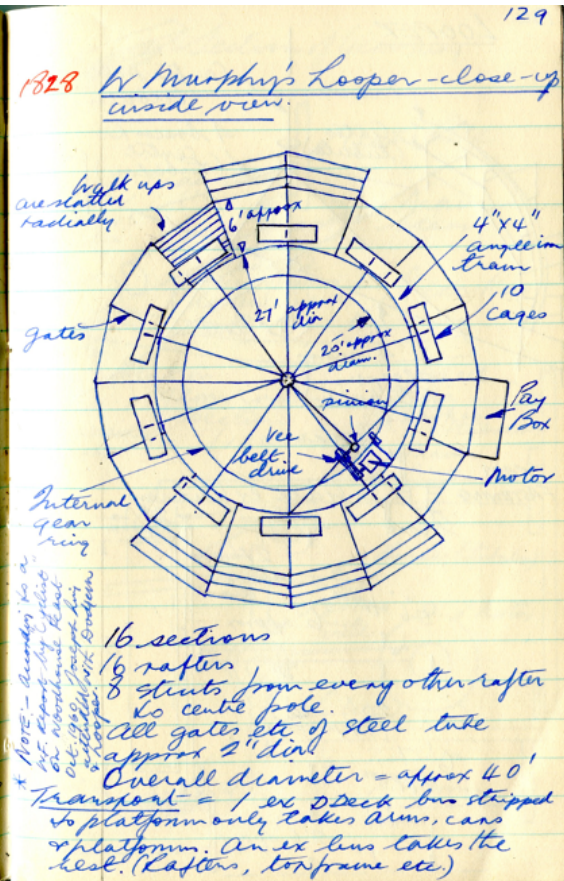 129
1828 W Murphy's Looper - close-up
inside view.
Walk ups
are slatted
radially
6' approx
4" x 4"
angle iron
10
cages
gates
27' approx
dia
20' approx
diam.
pinion
Pay
Box
Vee
belt
drive
Motor
Internal
gear
ring
16 sections
16 rafters
8 struts from every other rafter
to centre pole.
All gates etc of steel tube
approx 2" dia
Overall diameter = approx 40'
Transport = 1 ex DDeck bus stripped
to platform only takes arms, cars
& platforms. An ex bus takes the
rest. (Rafters, top frame etc.)
* NOTE:- According to a
report by
on Woodhouse Feast
Oct. 1960, Joseph
with Dodgem
& Looper.